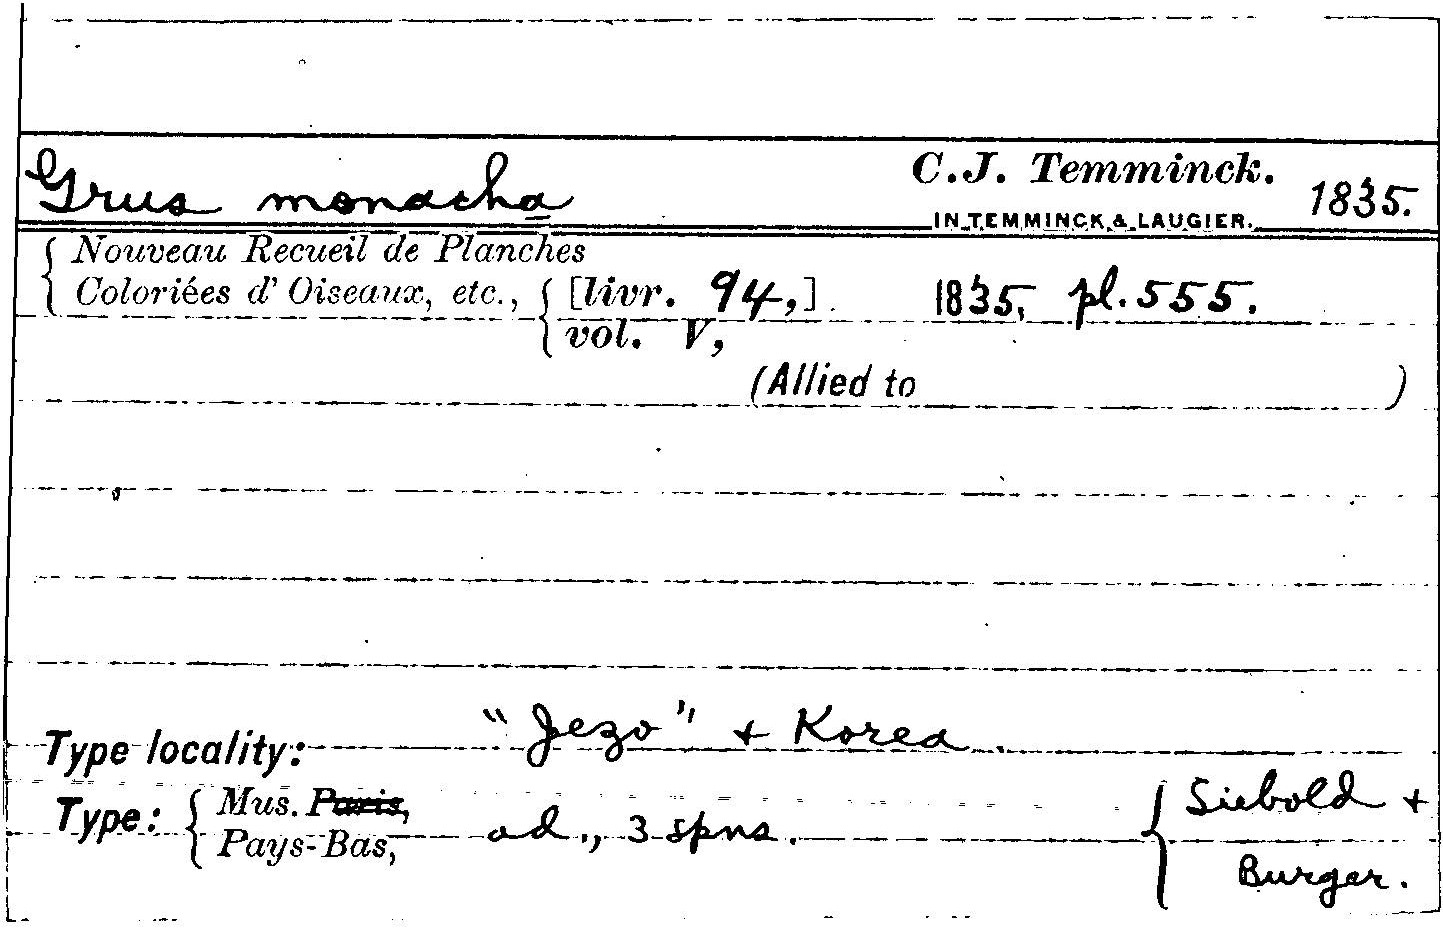 Grus monacha C.J. Temminck. 1835.
IN TEMMINCK & LAUGIER.
Nouveau Recueil de Planches
Coloriées d' Oiseaux, etc., [livr. 94,] 1835, pl. 555.
vol. V,
(Allied to )
Type locality: "Jezo" + Korea.
Type: Mus. Paris, Siebold +
Pays-Bas, ad., 3 spns. Burger.